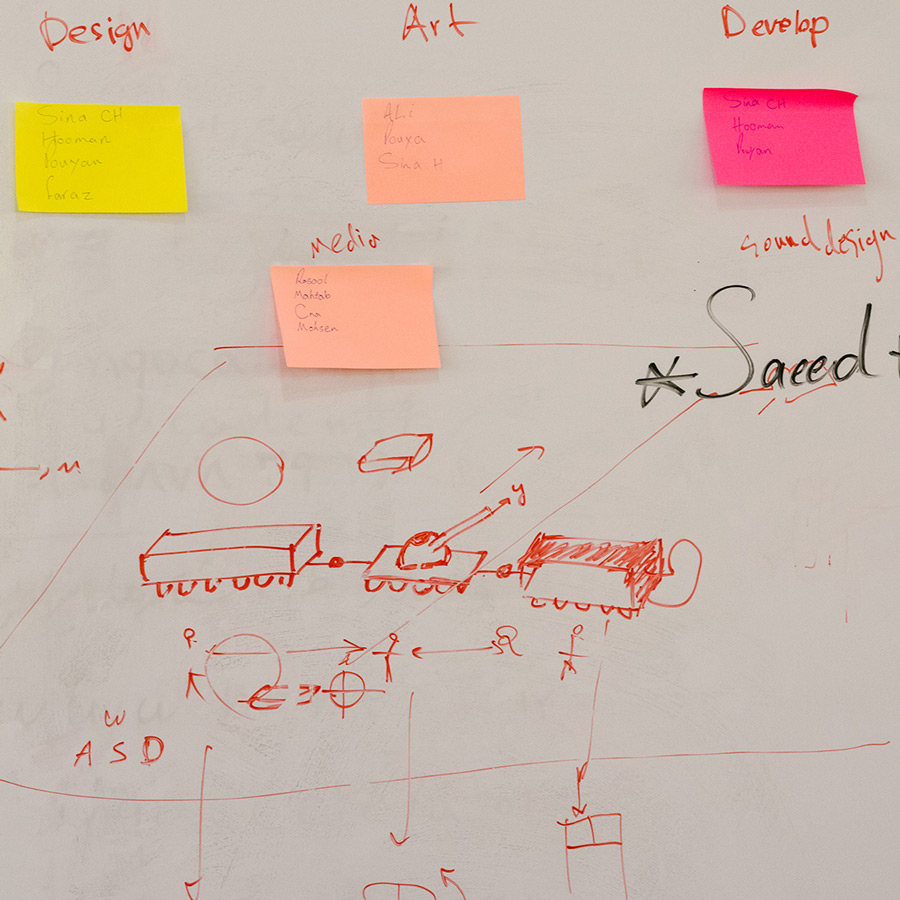 Design
Art
Develop
Sina CH
Hooman
Pouyan
Faraz
ALi
Pouya
Sina H
Sina CH
Hooman
Pouyan
Media
Rasool
Mahtab
Mohsen
sound design
* Saeed +
y
W
A S D